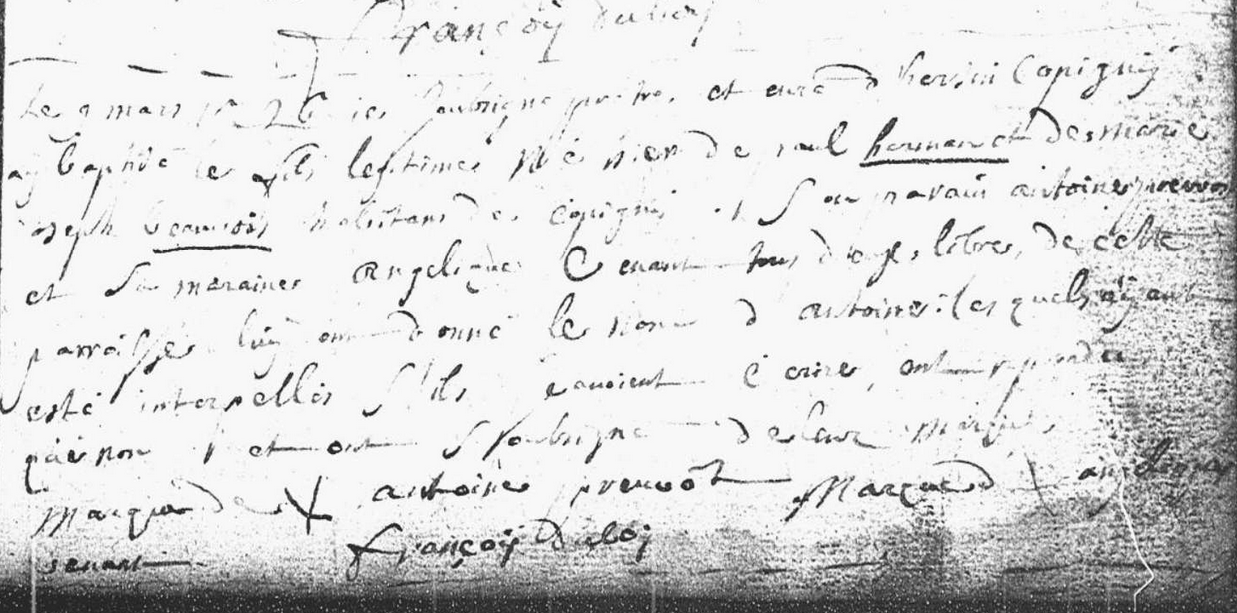 françois dubois
Le 9 mars 1726 je soubsigné prestre et curé d hersin Copigny
ay baptisé le fils legitime né hier de paul hermant et de marie
joseph beauvois habitans de Copigni et son parain antoine prevost
et Sa maraine angelique tous deux libres de cette
parroisse luy ont donné le nom d antoine lesquels ayant
esté interpellés s'ils scavoient écrire, ont repondu
que non et ont soubsigné de leur marque
marque de X antoine prevost Marque d X angelique
senant françois duboi